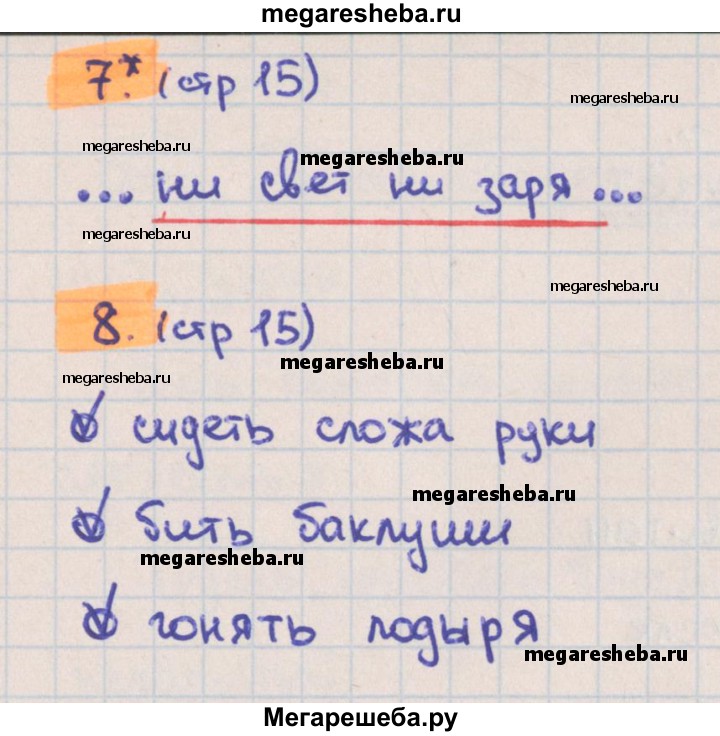 megaresheba.ru
7.* (стр 15)
megaresheba.ru
megaresheba.ru
megaresheba.ru
... ни свет ни заря ...
megaresheba.ru
megaresheba.ru
8. (стр 15)
megaresheba.ru
megaresheba.ru
сидеть сложа руки
megaresheba.ru
бить баклуши
megaresheba.ru
гонять лодыря
megaresheba.ru
Мегарешеба.ру